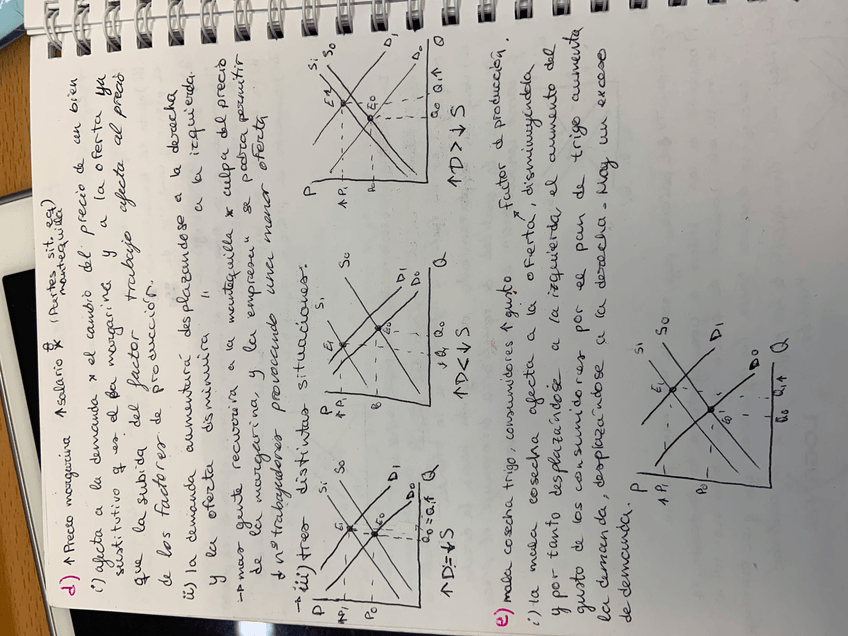 d) ↑ Precio margarina ↑ salario * (Partes sit. eq) mantequilla
i) afecta a la demanda x el cambio del precio de un bien
sustitutivo q es el la margarina y a la oferta ya
que la subida del factor trabajo afecta al precio
de los factores de producción.
ii) la demanda aumentará desplazandose a la derecha
y la oferta disminuirá " a la izquierda.
→ mas gente recurrira a la mantequilla x culpa del precio
de la margarina y la empresa se podra permitir
↓ nº trabajadores provocando una menor oferta
→ iii) tres distintas situaciones:
P S1 S0
↑P1 E1 D1
P0 E0 D0
Q0=Q1↑ Q
↑D=↓S
P S1 S0
↑P1 E1 D1
P0 E0 D0
↓Q1 Q0 Q
↑D<↓S
P S1 S0 D1
↑P1 E1 D0
P0 E0
Q0 Q1↑ Q
↑D>↓S
e) mala cosecha trigo, consumidores ↑ gusto
Factor d producción.
i) la mala cosecha afecta a la oferta, disminuyéndola
y por tanto desplazándose a la izquierda, el aumento del
gusto de los consumidores por el pan de trigo aumenta
la demanda, desplazándose a la derecha = Hay un exceso
de demanda.
P S1 S0
↑P1 E1 D1
P0 E0 D0
Q0 Q1↑ Q